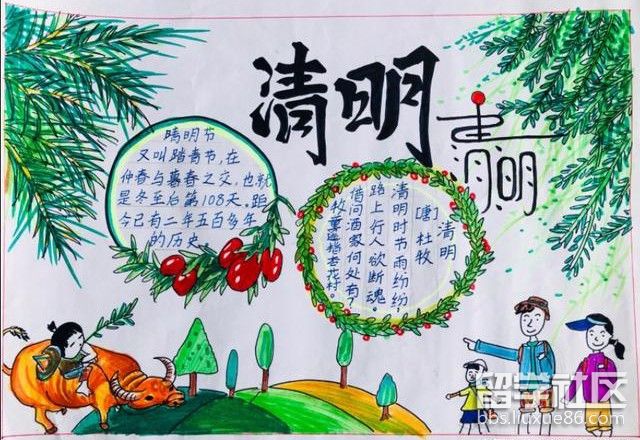 清明
清明
晴明节
又叫踏青节,在
仲春与暮春之交,也就
是冬至后第108天。距
今已有二年五百多年
的历史。
清明
[唐]杜牧
清明时节雨纷纷,
路上行人欲断魂。
借问酒家何处有?
牧童遥指杏花村。
留学社区
bbs.liuxue86.com